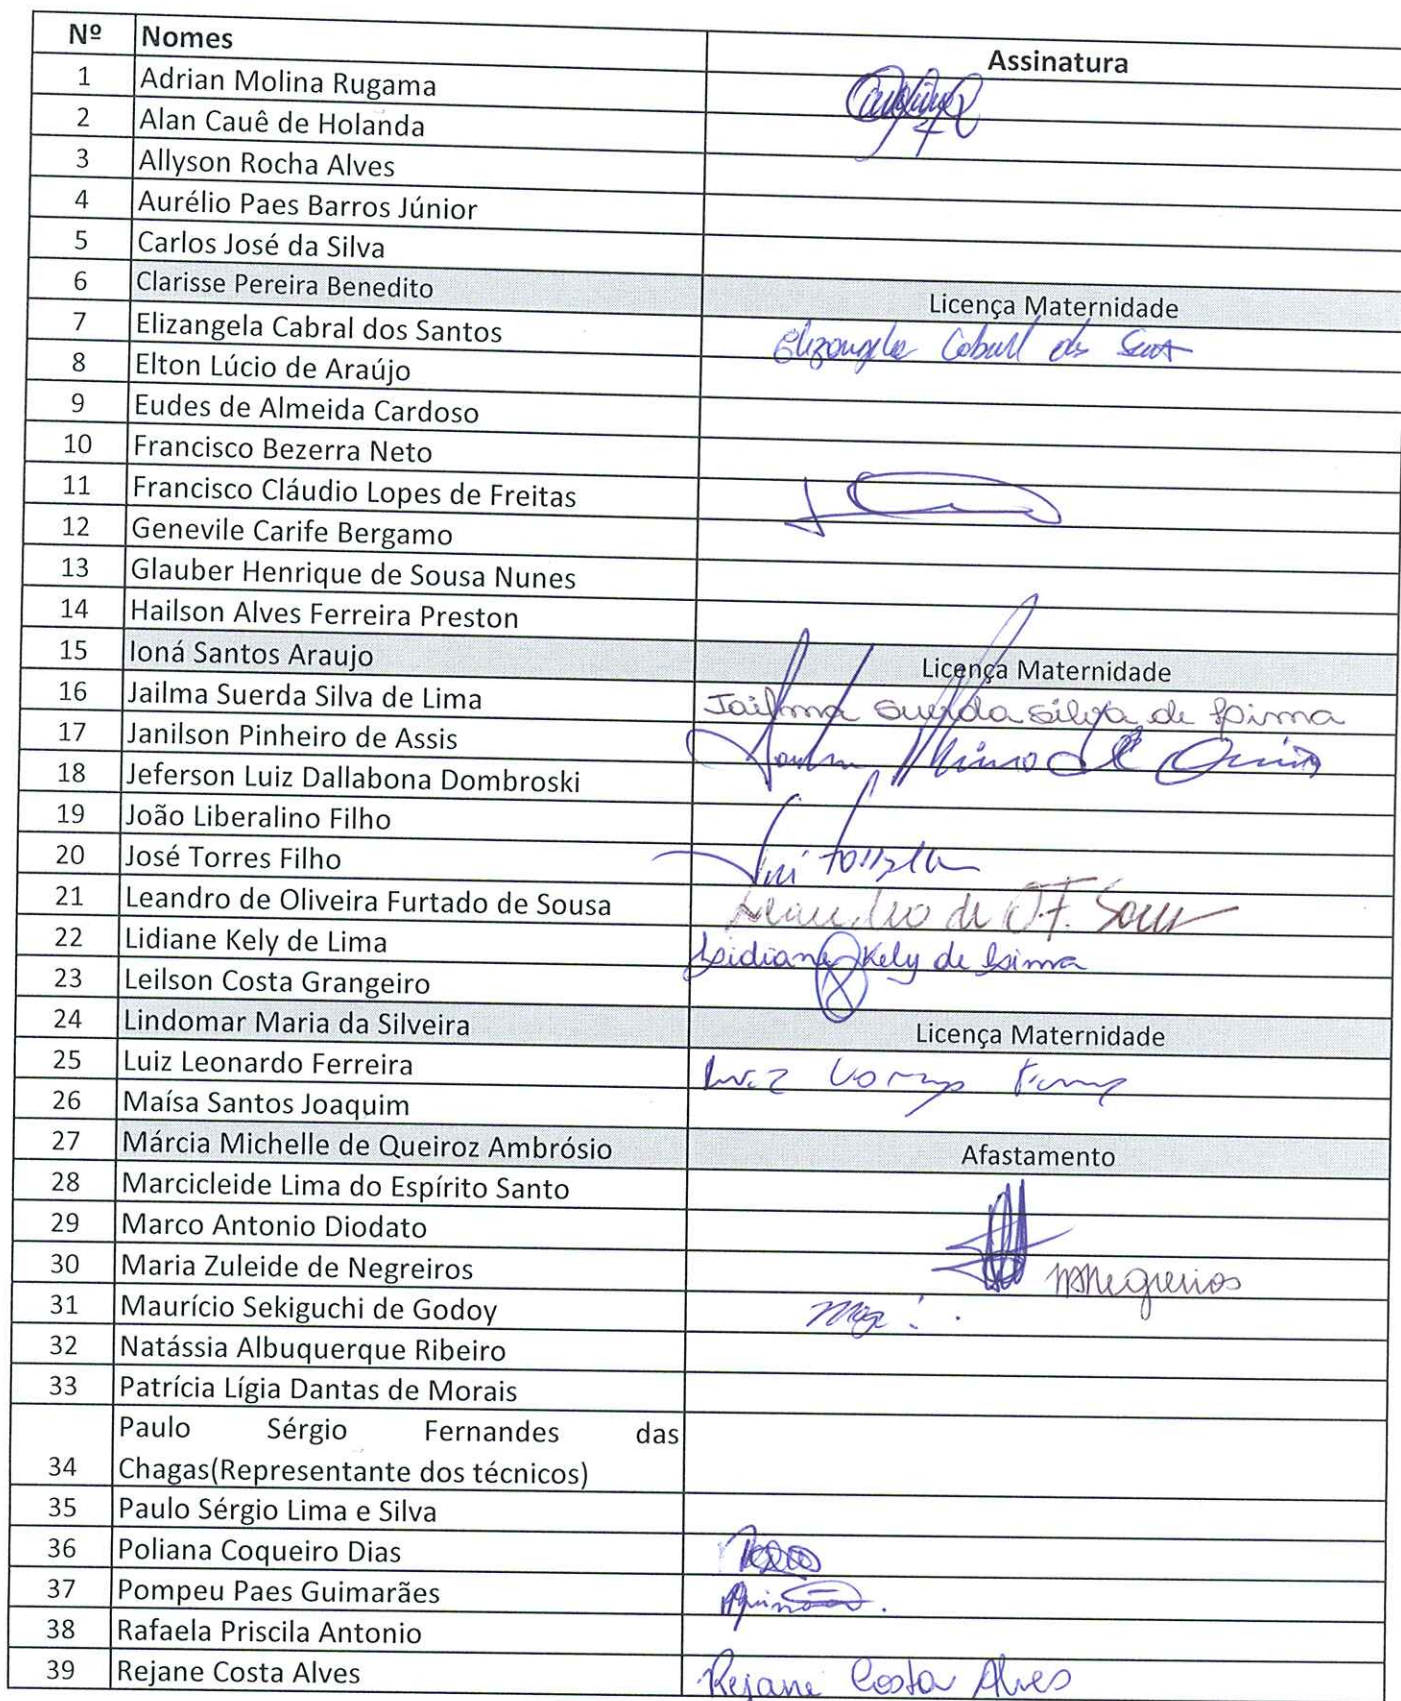 Nº Nomes Assinatura
1 Adrian Molina Rugama
2 Alan Cauê de Holanda
3 Allyson Rocha Alves
4 Aurélio Paes Barros Júnior
5 Carlos José da Silva
6 Clarisse Pereira Benedito Licença Maternidade
7 Elizangela Cabral dos Santos Elizangela Cabral dos Sant
8 Elton Lúcio de Araújo
9 Eudes de Almeida Cardoso
10 Francisco Bezerra Neto
11 Francisco Cláudio Lopes de Freitas
12 Genevile Carife Bergamo
13 Glauber Henrique de Sousa Nunes
14 Hailson Alves Ferreira Preston
15 Ioná Santos Araujo Licença Maternidade
16 Jailma Suerda Silva de Lima Jailma Suerda Silva de Lima
17 Janilson Pinheiro de Assis
18 Jeferson Luiz Dallabona Dombroski
19 João Liberalino Filho
20 José Torres Filho
21 Leandro de Oliveira Furtado de Sousa Leandro de O.F. Sousa
22 Lidiane Kely de Lima Lidiane Kely de Lima
23 Leilson Costa Grangeiro
24 Lindomar Maria da Silveira Licença Maternidade
25 Luiz Leonardo Ferreira Luiz
26 Maísa Santos Joaquim
27 Márcia Michelle de Queiroz Ambrósio Afastamento
28 Marcicleide Lima do Espírito Santo
29 Marco Antonio Diodato
30 Maria Zuleide de Negreiros MZNegreiros
31 Maurício Sekiguchi de Godoy
32 Natássia Albuquerque Ribeiro
33 Patrícia Lígia Dantas de Morais
Paulo Sérgio Fernandes das
34 Chagas(Representante dos técnicos)
35 Paulo Sérgio Lima e Silva
36 Poliana Coqueiro Dias
37 Pompeu Paes Guimarães
38 Rafaela Priscila Antonio
39 Rejane Costa Alves Rejane Costa Alves